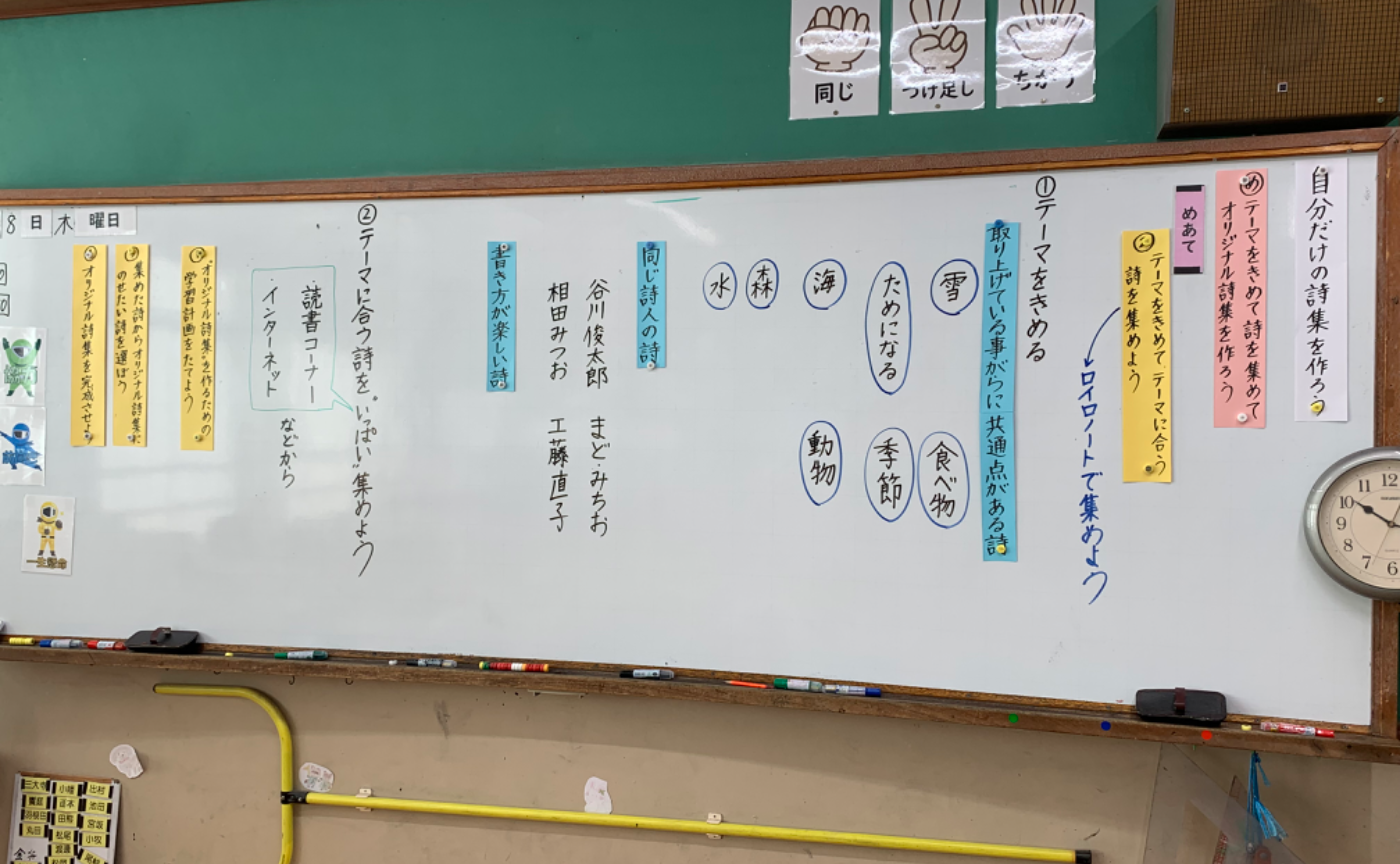 同じ
つけ足し
ちがう
自分だけの詩集を作ろう
め テーマをきめて詩を集めて
オリジナル詩集を作ろう
めあて
テーマをきめて、テーマに合う
詩を集めよう
ロイロノートで集めよう
①テーマをきめる
取り上げている事がらに共通点がある詩
雪
食べ物
ためになる
季節
海
動物
森
水
同じ詩人の詩
谷川俊太郎 まど・みちお
相田みつお 工藤直子
書き方が楽しい詩
②テーマに合う詩を"いっぱい"集めよう
・読書コーナー
・インターネット
などから
"オリジナル詩集"を作るための
学習計画をたてよう
集めた詩からオリジナル詩集に
のせたい詩を選ぼう
オリジナル詩集を完成させよう
8日木曜日
10
11
12
9
8
7
6
小槽
出村
池田
宮坂
丸田
松尾
小牧
渡邊